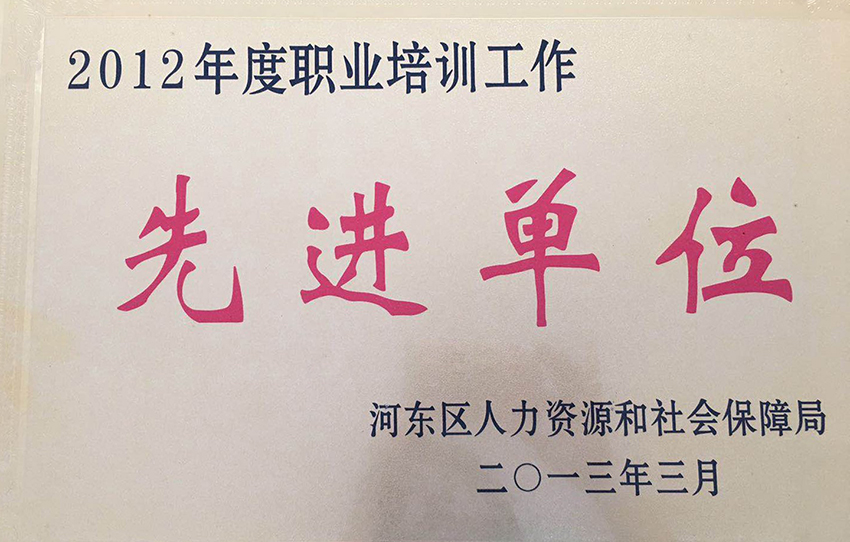 2012年度职业培训工作
先进单位
河东区人力资源和社会保障局
二〇一三年三月